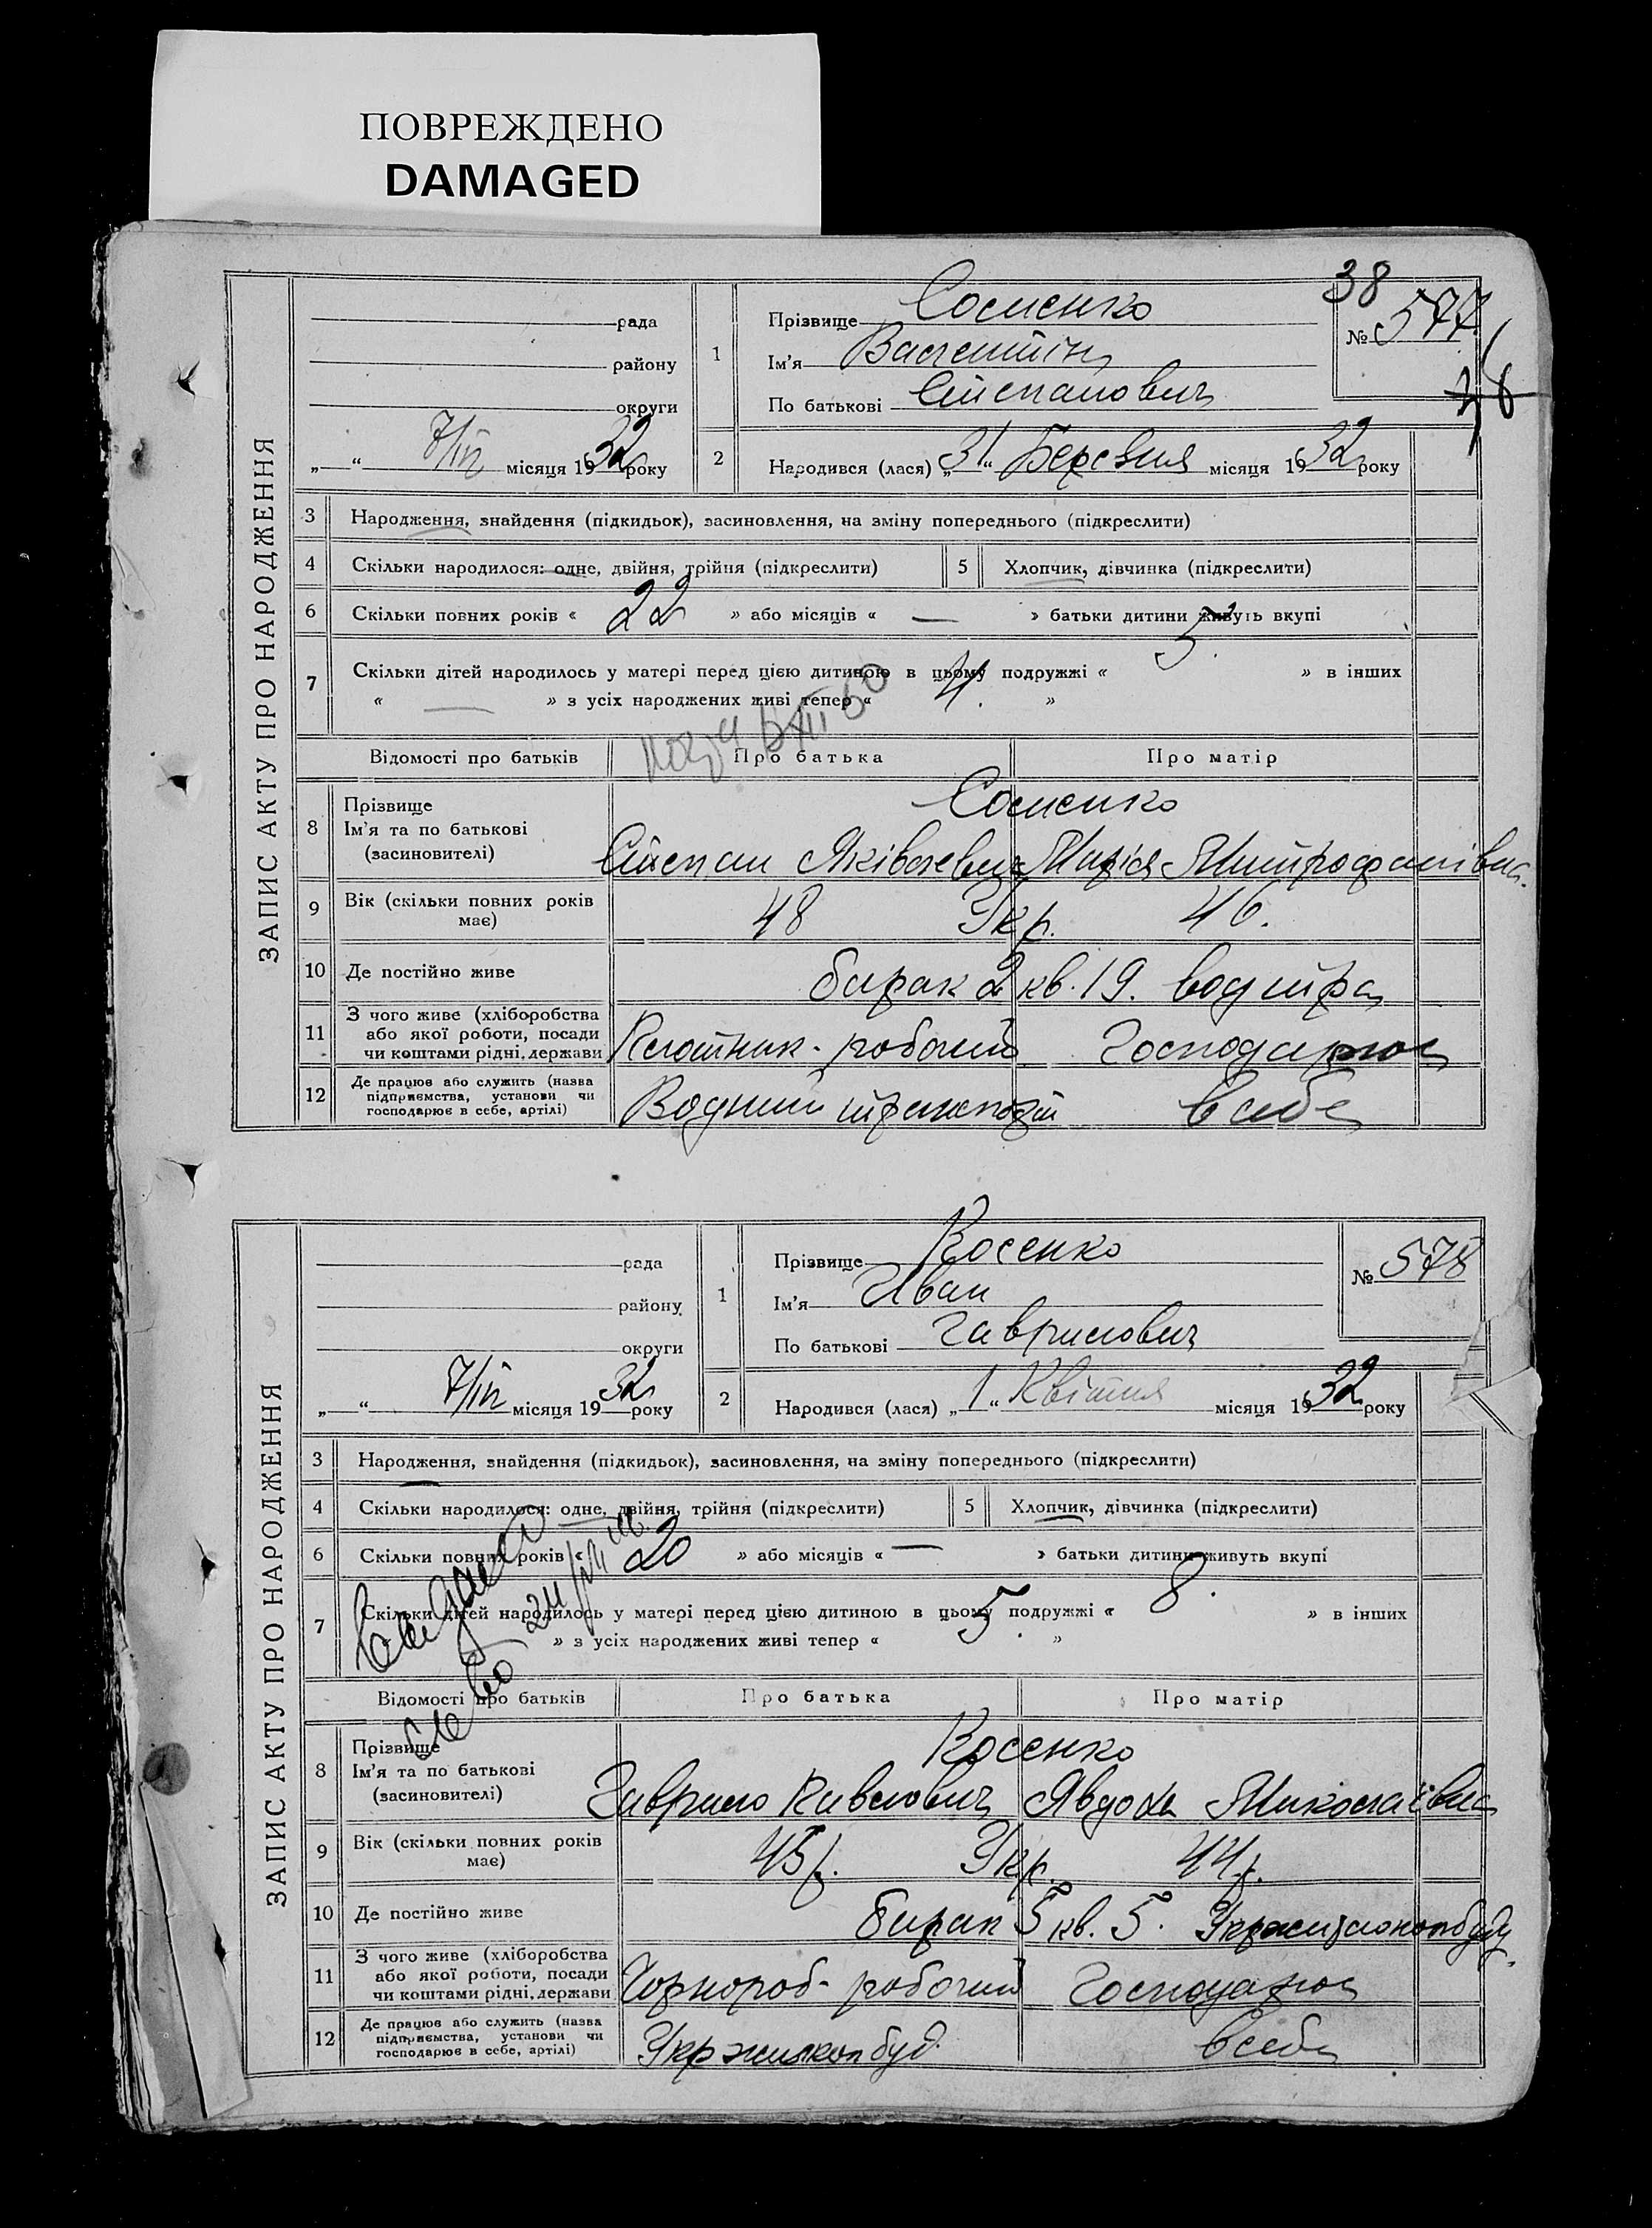 ПОВРЕЖДЕНО
DAMAGED
38
ЗАПИС АКТУ ПРО НАРОДЖЕННЯ
рада
району
округи
„ “ 7/IV місяця 1932 року
1
Прізвище Сосненко
Ім'я Валентин
По батькові Степанович
№ 577
2 Народився (лася) „31“ Березня місяця 1932 року
3 Народження, знайдення (підкидьок), засиновлення, на зміну попереднього (підкреслити)
4 Скільки народилося: одне, двійня, трійня (підкреслити) 5 Хлопчик, дівчинка (підкреслити)
6 Скільки повних років « 22 » або місяців « — » батьки дитини живуть вкупі
7 Скільки дітей народилось у матері перед цією дитиною в цьому подружжі « 5. » в інших
« — » з усіх народжених живі тепер « 4. »
Відомості про батьків Про батька Про матір
8 Прізвище
Ім'я та по батькові
(засиновителі)
Сосненко
Степан Яківлевич Марія Митрофанівна.
9 Вік (скільки повних років має) 48 Укр. 46.
10 Де постійно живе барак 2 кв. 19. водтра
11 З чого живе (хліборобства
або якої роботи, посади
чи коштами рідні, держави
робочий Господарює
12 Де працює або служить (назва
підприємства, установи чи
господарює в себе, артілі)
Водний транспорт в себе
ЗАПИС АКТУ ПРО НАРОДЖЕННЯ
рада
району
округи
„ “ 7/IV місяця 1932 року
1
Прізвище Косенко
Ім'я Иван
По батькові Гаврилович
№ 578
2 Народився (лася) „1“ Квітня місяця 1932 року
3 Народження, знайдення (підкидьок), засиновлення, на зміну попереднього (підкреслити)
4 Скільки народилося: одне, двійня, трійня (підкреслити) 5 Хлопчик, дівчинка (підкреслити)
6 Скільки повних років « 20 » або місяців « — » батьки дитини живуть вкупі
7 Скільки дітей народилось у матері перед цією дитиною в цьому подружжі « 8. » в інших
» з усіх народжених живі тепер « 5. »
Відомості про батьків Про батька Про матір
8 Прізвище
Ім'я та по батькові
(засиновителі)
Косенко
Гаврило Павлович Явдоха Миколаївна
9 Вік (скільки повних років має) 45 р. Укр. 44 р.
10 Де постійно живе барак 5 кв. 5.
11 З чого живе (хліборобства
або якої роботи, посади
чи коштами рідні, держави
Чорнороб - робочий Господарює
12 Де працює або служить (назва
підприємства, установи чи
господарює в себе, артілі)
Укржилкопбуд. в себе